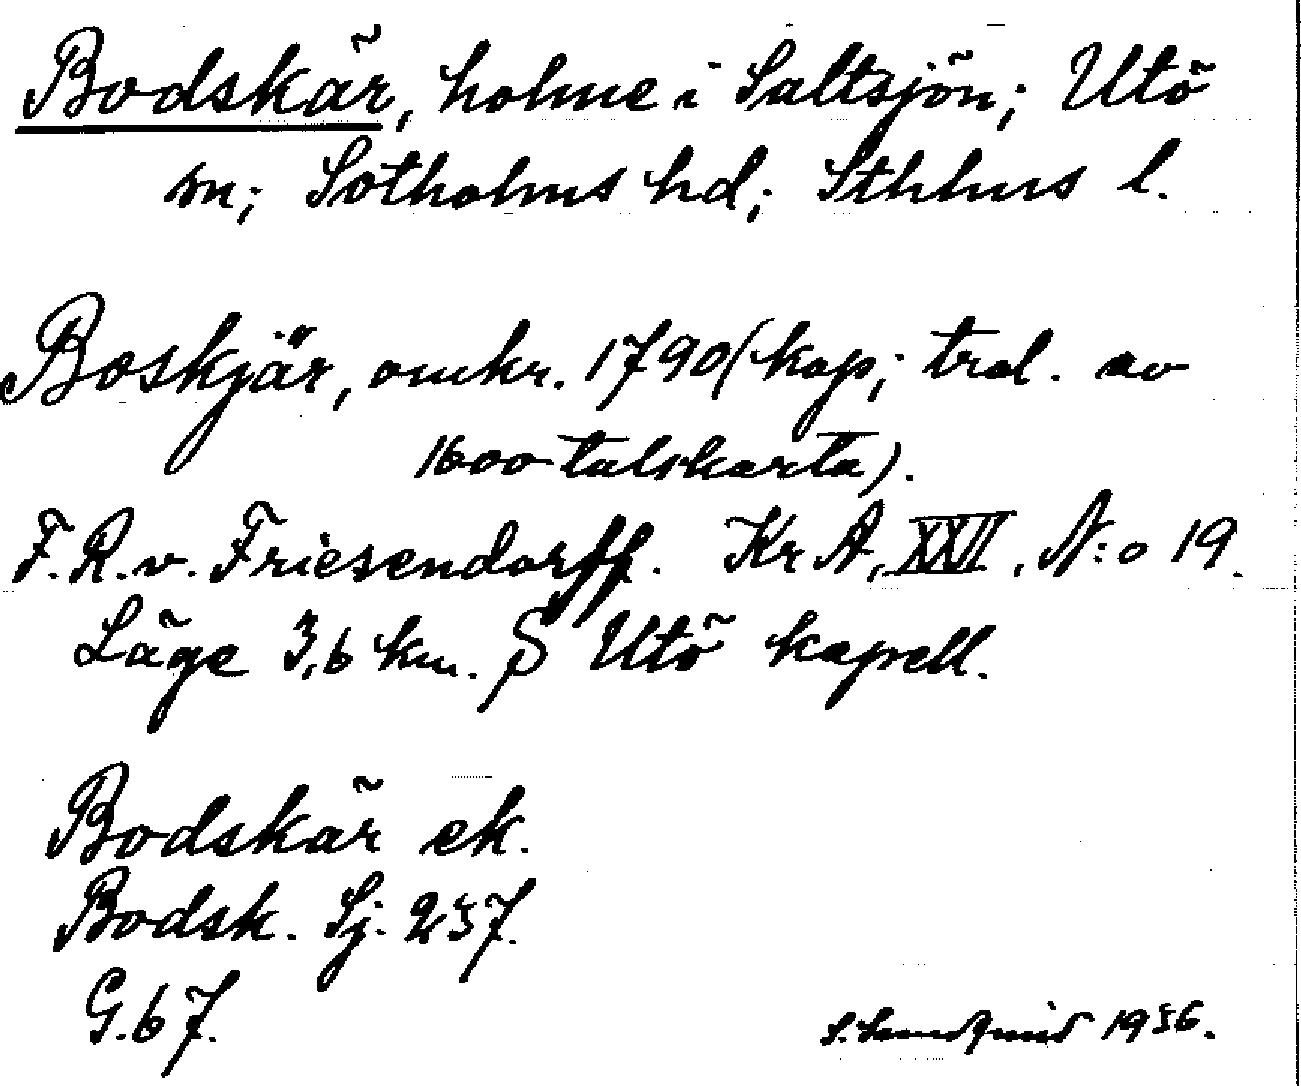 Bodskär, holme i Saltsjön; Utö
sn; Sotholms hd; Sthlms l.
Boskjär, omkr. 1790 (kop; trol. av
1600-talskarta).
F.R.v. Friesendorff. Kr A, XXVI, N:o 19.
Läge 3,6 km. S Utö kapell.
Bodskär ek.
Bodsk. Sj. 257.
G.67.
S. Lundqvist 1936.